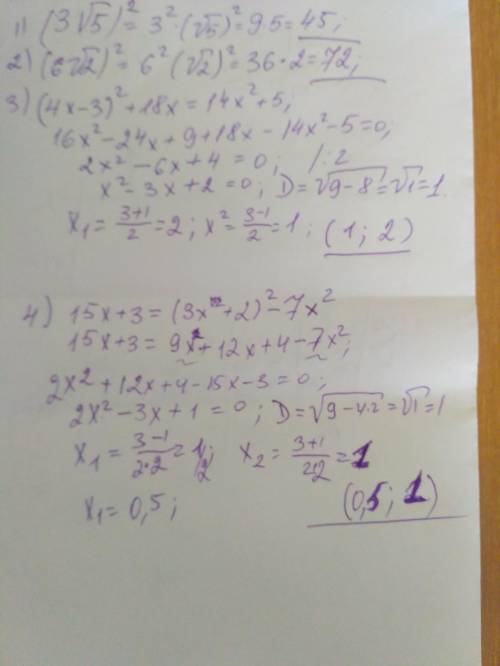 1) (3√5)² = 3²·(√5)² = 9·5 = 45;
2) (6√2)² = 6²(√2)² = 36·2 = 72;
3) (4x-3)² + 18x = 14x² + 5;
16x² - 24x + 9 + 18x - 14x² - 5 = 0;
2x² - 6x + 4 = 0; /:2
x² - 3x + 2 = 0; D = √9-8 = √1 = 1.
x₁ = (3+1)/2 = 2; x² = (3-1)/2 = 1; (1; 2)
4) 15x + 3 = (3x + 2)² - 7x²
15x + 3 = 9x² + 12x + 4 - 7x²;
2x² + 12x + 4 - 15x - 3 = 0;
2x² - 3x + 1 = 0; D = √9-4·2 = √1 = 1
x₁ = (3-1)/(2·2) = 1/2; x₂ = (3+1)/(2·2) = 1
x₁ = 0,5; (0,5; 1)